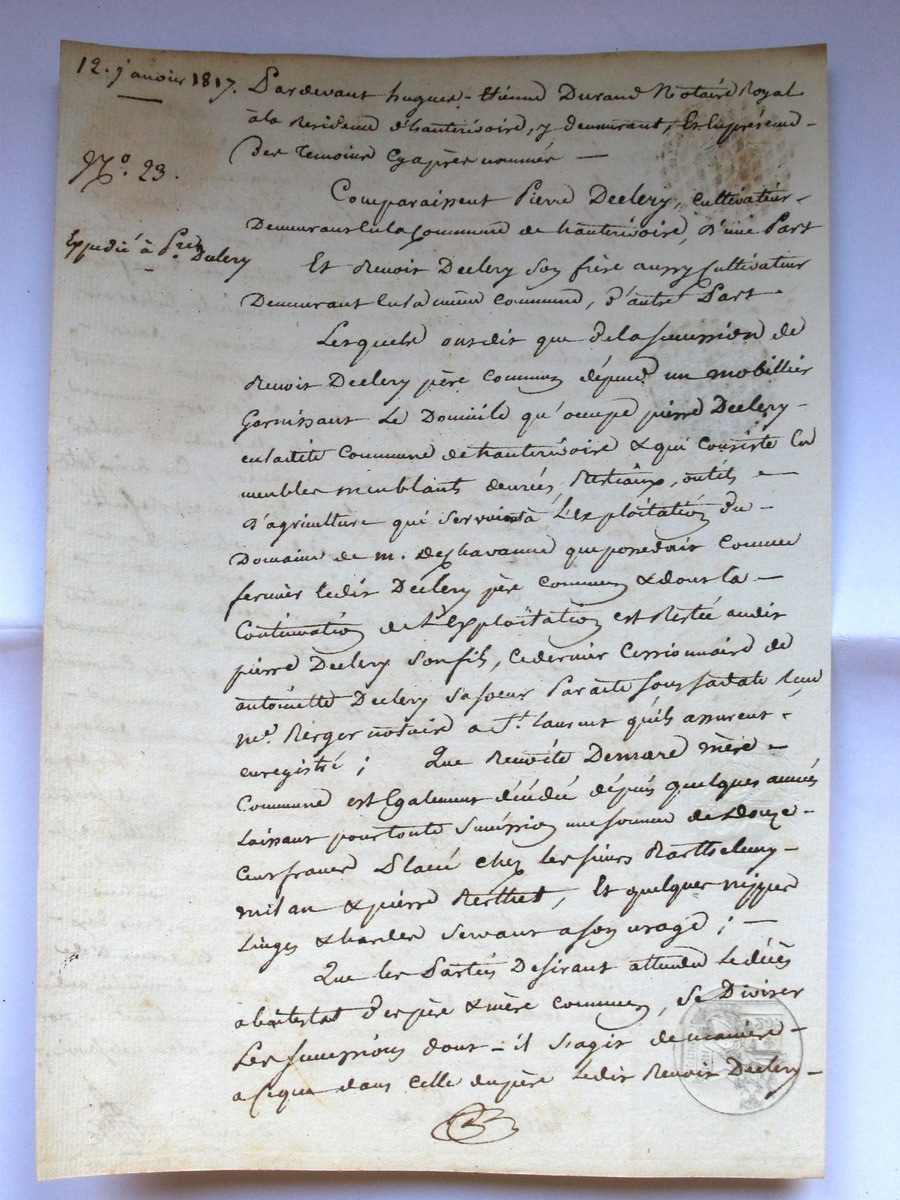 12. janvier 1817.
N.o 23.
Expedié à P.re Declery
Pardevant hugues-Etienne Durand Notaire Royal
à la Residence d'hauterivoire, y demeurant, Et En présence
des Temoins Cyaprès nommés —
Comparaissent Pierre Declery, cultivateur
Demeurant En la Commune de hauterivoire, d'une Part
Et Benoit Declery Son frère aussy Cultivateur
Demeurant En la même Commune, d'autre Part
Lesquels ont dit que de la succession de
Benoit Declery père commun dépend un mobillier
Garnissant Le Domicile qu'occupe pierre Declery
en ladite Commune de hauterivoire & qui consiste En
meubles meublants denrées, Bestiaux, outils
d'agriculture qui servoient à L'exploitation du
Domaine de m. deschavanne que possedait comme
fermier ledit Declery père commun & dont la
Continuation de L'exploitation est Restée audit
pierre Declery son fils, ce dernier Cessionnaire de
antoinette Declery sa soeur Par acte sous sa date reçu
m.e Berger notaire a S.t Laurent qu'ils assurent
enregistré ; Que Benoite Demare mère
Commune est Egalement décédée dépuis quelques années
Laissant pour toute succession une somme de Douze
Cent francs Placée chez les sieurs Barthelemy
milan & pierre Berthet, Et quelques nippes
Linges & hardes servant a son usage ; —
Que les Parties Desirant attendu le décès
abintestat des père & mère communs, se Diviser
Les successions dont il s'agit de manière
a ce que dans celle du père Ledit Benoit Declery